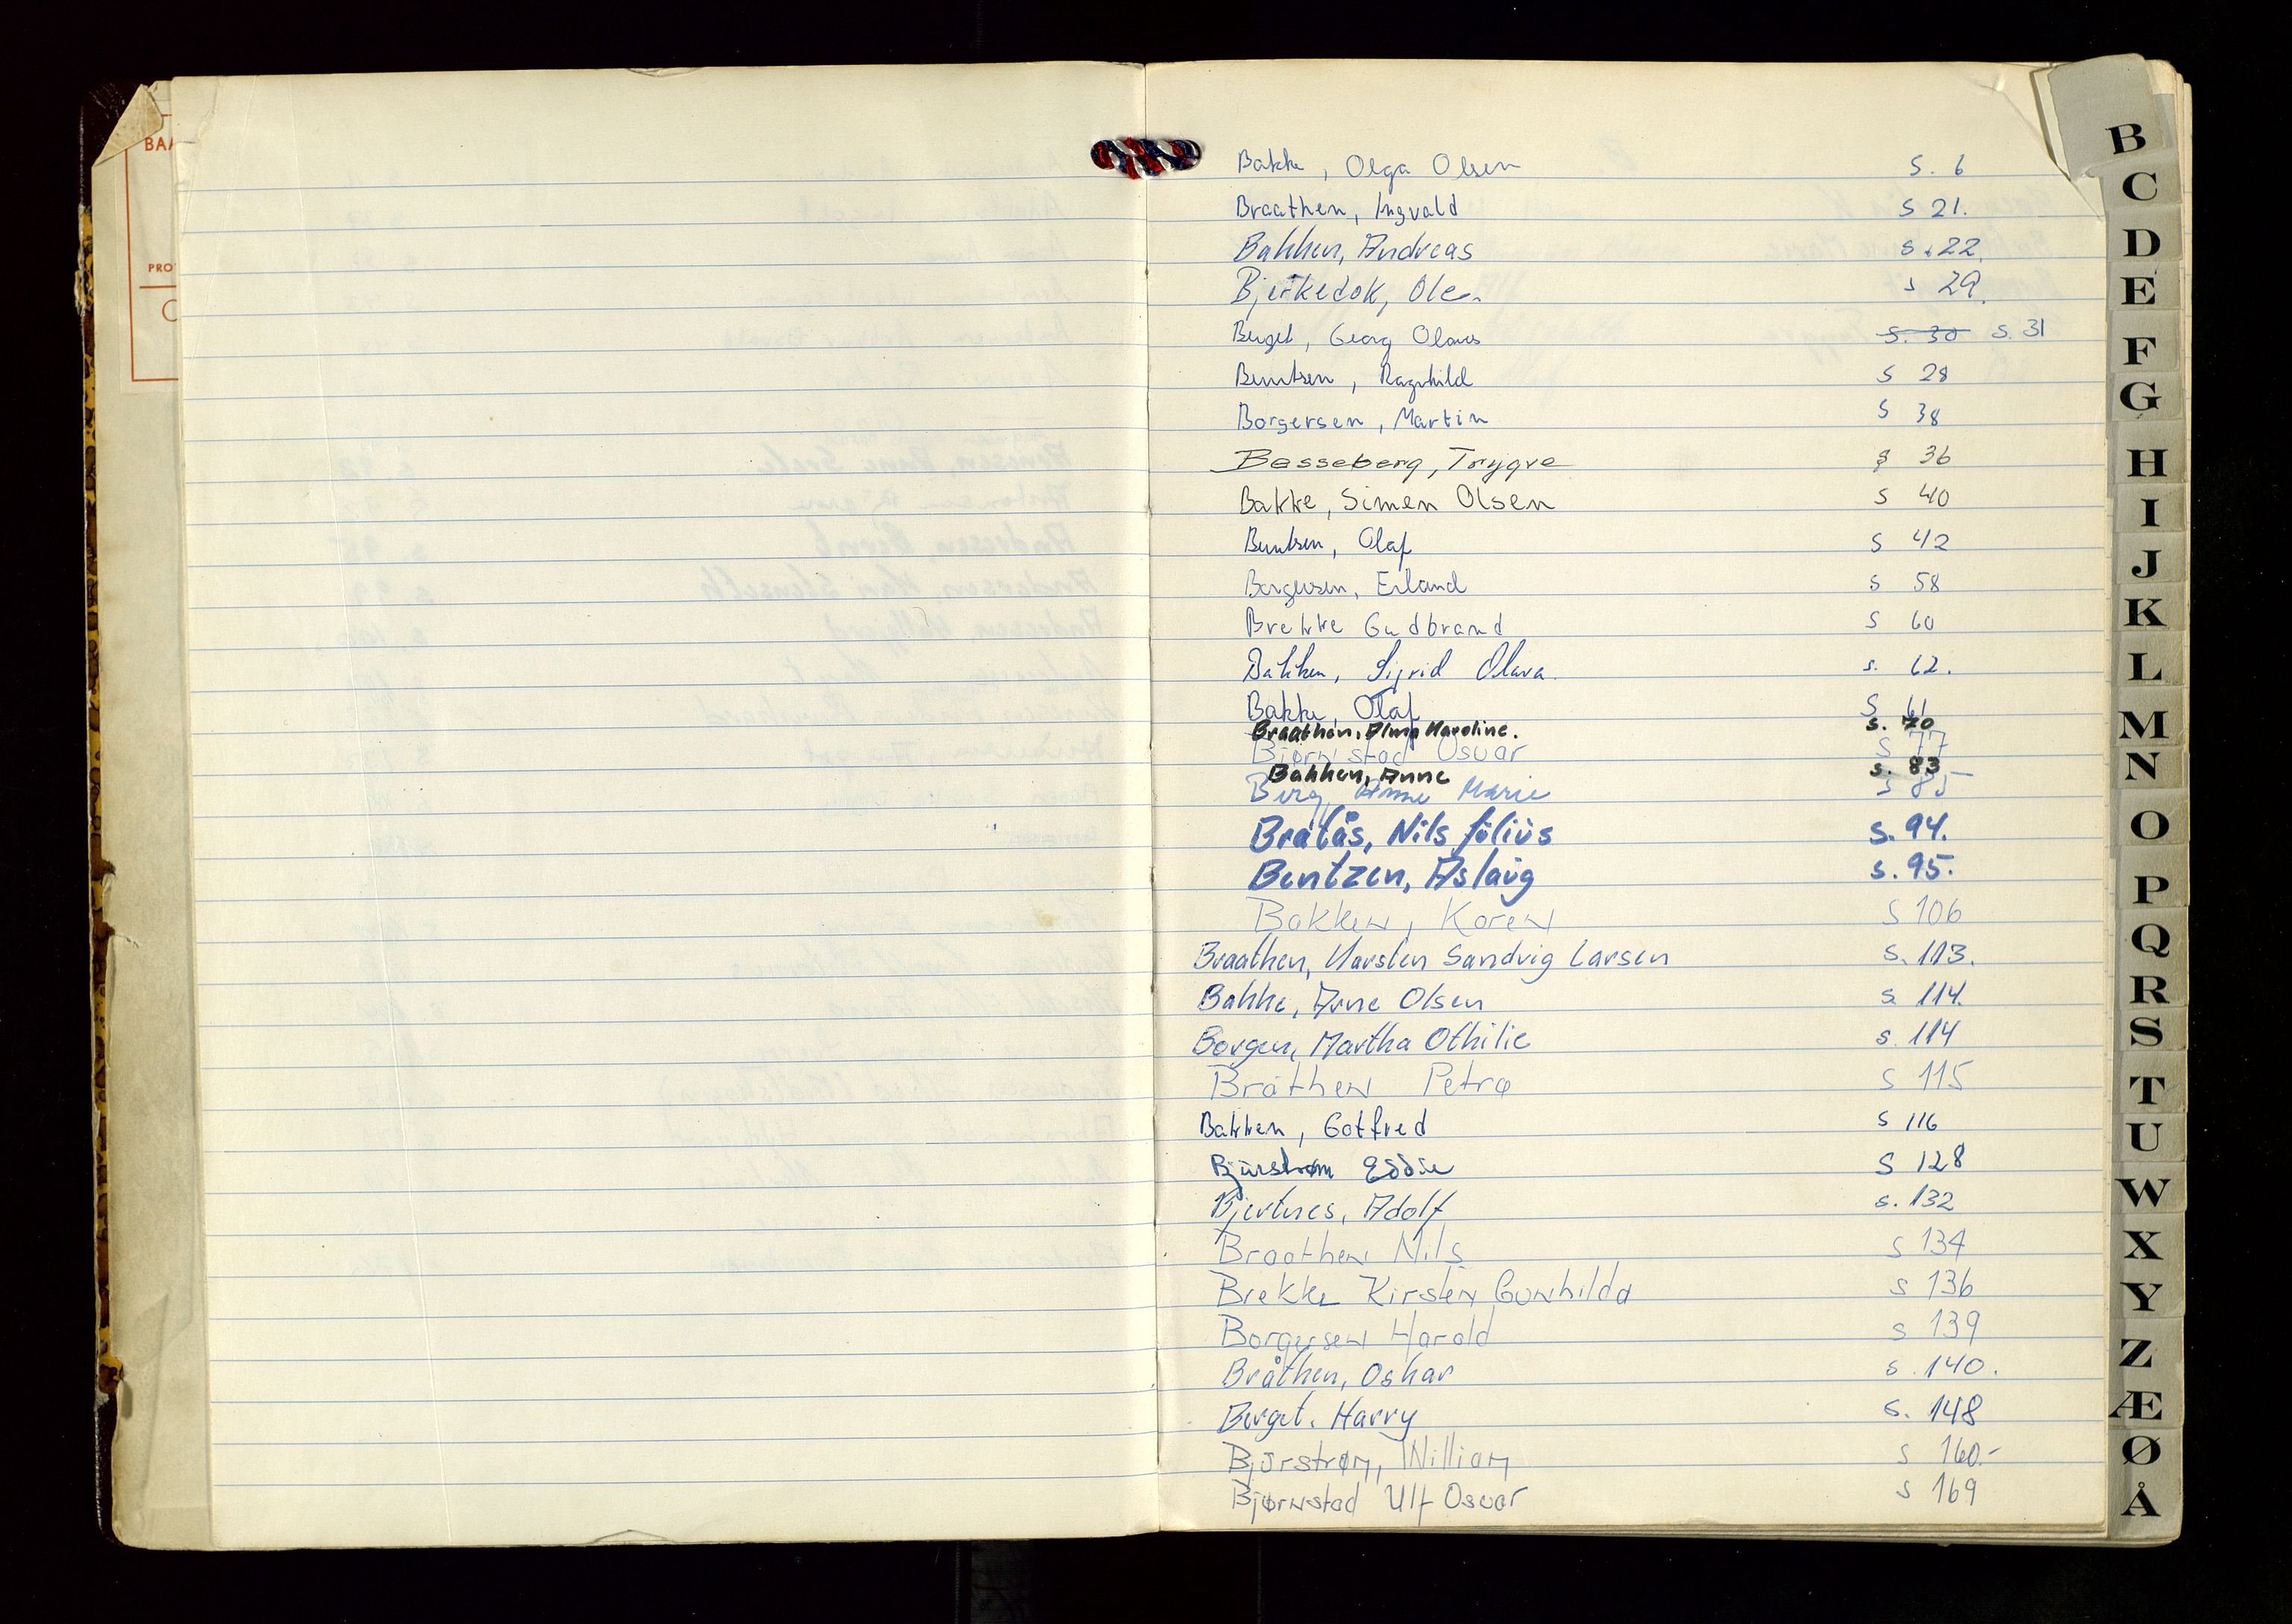 BAA
PRO
Bakke, Olga Olsen S. 6
Braathen, Ingvald S 21.
Bakken, Andreas s. 22.
Bjerkedok, Ole. s 29.
Berget, Georg Olaus S. 30 S. 31
Berntsen, Ragnhild S 28
Borgersen, Martin S 38
Basseberg, Trygve S 36
Bakke, Simen Olsen S 40
Berntsen, Olaf S 42
Borgersen, Erland S 58
Brekke Gudbrand S 60
Bakken, Sigrid Olava. s. 62.
Bakke, Olaf S 61
Braathen, Alma Karoline. s. 70
Bjørnstad Osvar S 77
Bakken, Anne s. 83
Berg, Anne Marie S 85
Bråtås, Nils Júliús s. 94.
Bentzen, Aslaúg s. 95.
Bakken, Karen S 106
Braathen, Karsten Sandvig Larsen s. 113.
Bakke, Arne Olsen s. 114.
Borgen, Martha Othilie s. 114
Bråthen Petra S 115
Bakken, Gotfred S 116
Bjúrstrøm Eddie S 128
Bjertnes, Adolf s. 132
Braathen Nils S 134
Brekke Kirsten Gunhilda S 136
Borgersen Harald S 139
Bråthen, Oskar s. 140.
Berget. Harry s. 148
Bjúrstrøm, William S 160.-
Bjørnstad Ulf Osvar S 169
B
C
D
E
F
G
H
I
J
K
L
M
N
O
P
Q
R
S
T
U
W
X
Y
Z
Æ
Ø
Å